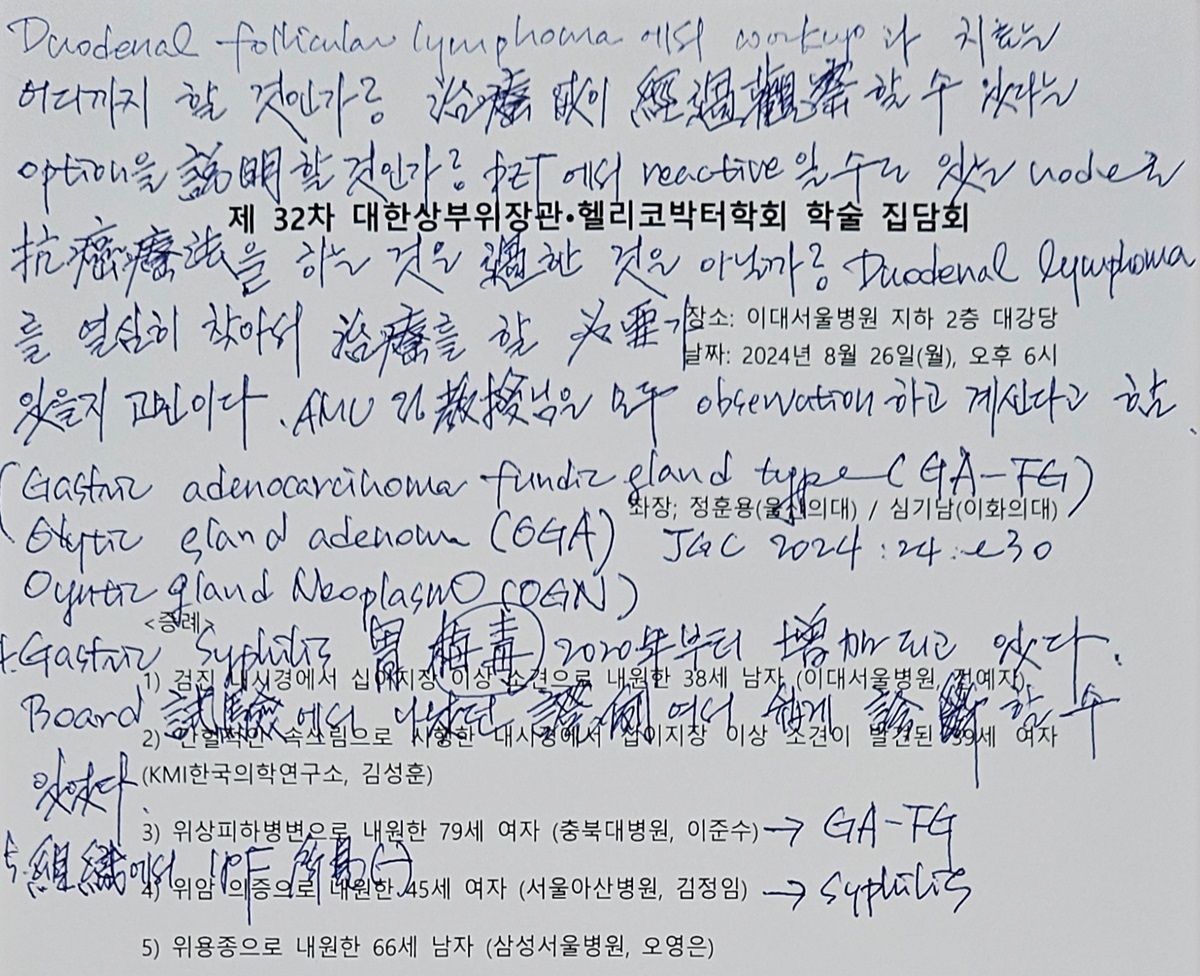 Duodenal follicular lymphoma 에서 workup과 치료는
어디까지 할 것인가? 治療 없이 經過觀察할 수 있다는
option을 說明할 것인가? PET에서 reactive일 수도 있는 node를
제 32차 대한상부위장관•헬리코박터학회 학술 집담회
抗癌療法을 하는 것은 過한 것은 아닐까? Duodenal lymphoma
장소: 이대서울병원 지하 2층 대강당
를 열심히 찾아서 治療를 할 必要가
날짜: 2024년 8월 26일(월), 오후 6시
있을지 고민이다. AMC 敎授님은 모두 observation 하고 계신다고 함.
(Gastric adenocarcinoma fundic gland type (GA-FG)
좌장; 정훈용(울산의대) / 심기남(이화의대)
Oxyntic gland adenoma (OGA) JGC 2024:24:e30
Oxyntic gland Neoplasm (OGN)
<증례>
4. Gastric Syphilis 胃梅毒 2020年부터 增加되고 있다.
1) 검진 내시경에서 십이지장 이상 소견으로 내원한 38세 남자 (이대서울병원, 전예자)
Board 試驗에서 나왔던 證例여서 쉽게 診斷할 수
2) 간헐적인 속쓰림으로 시행한 내시경에서 십이지장 이상 소견이 발견된 59세 여자
있었다.
(KMI한국의학연구소, 김성훈)
3) 위상피하병변으로 내원한 79세 여자 (충북대병원, 이준수) → GA-FG
5. 組織에서
4) 위암 의증으로 내원한 45세 여자 (서울아산병원, 김정임) → Syphilis
5) 위용종으로 내원한 66세 남자 (삼성서울병원, 오영은)